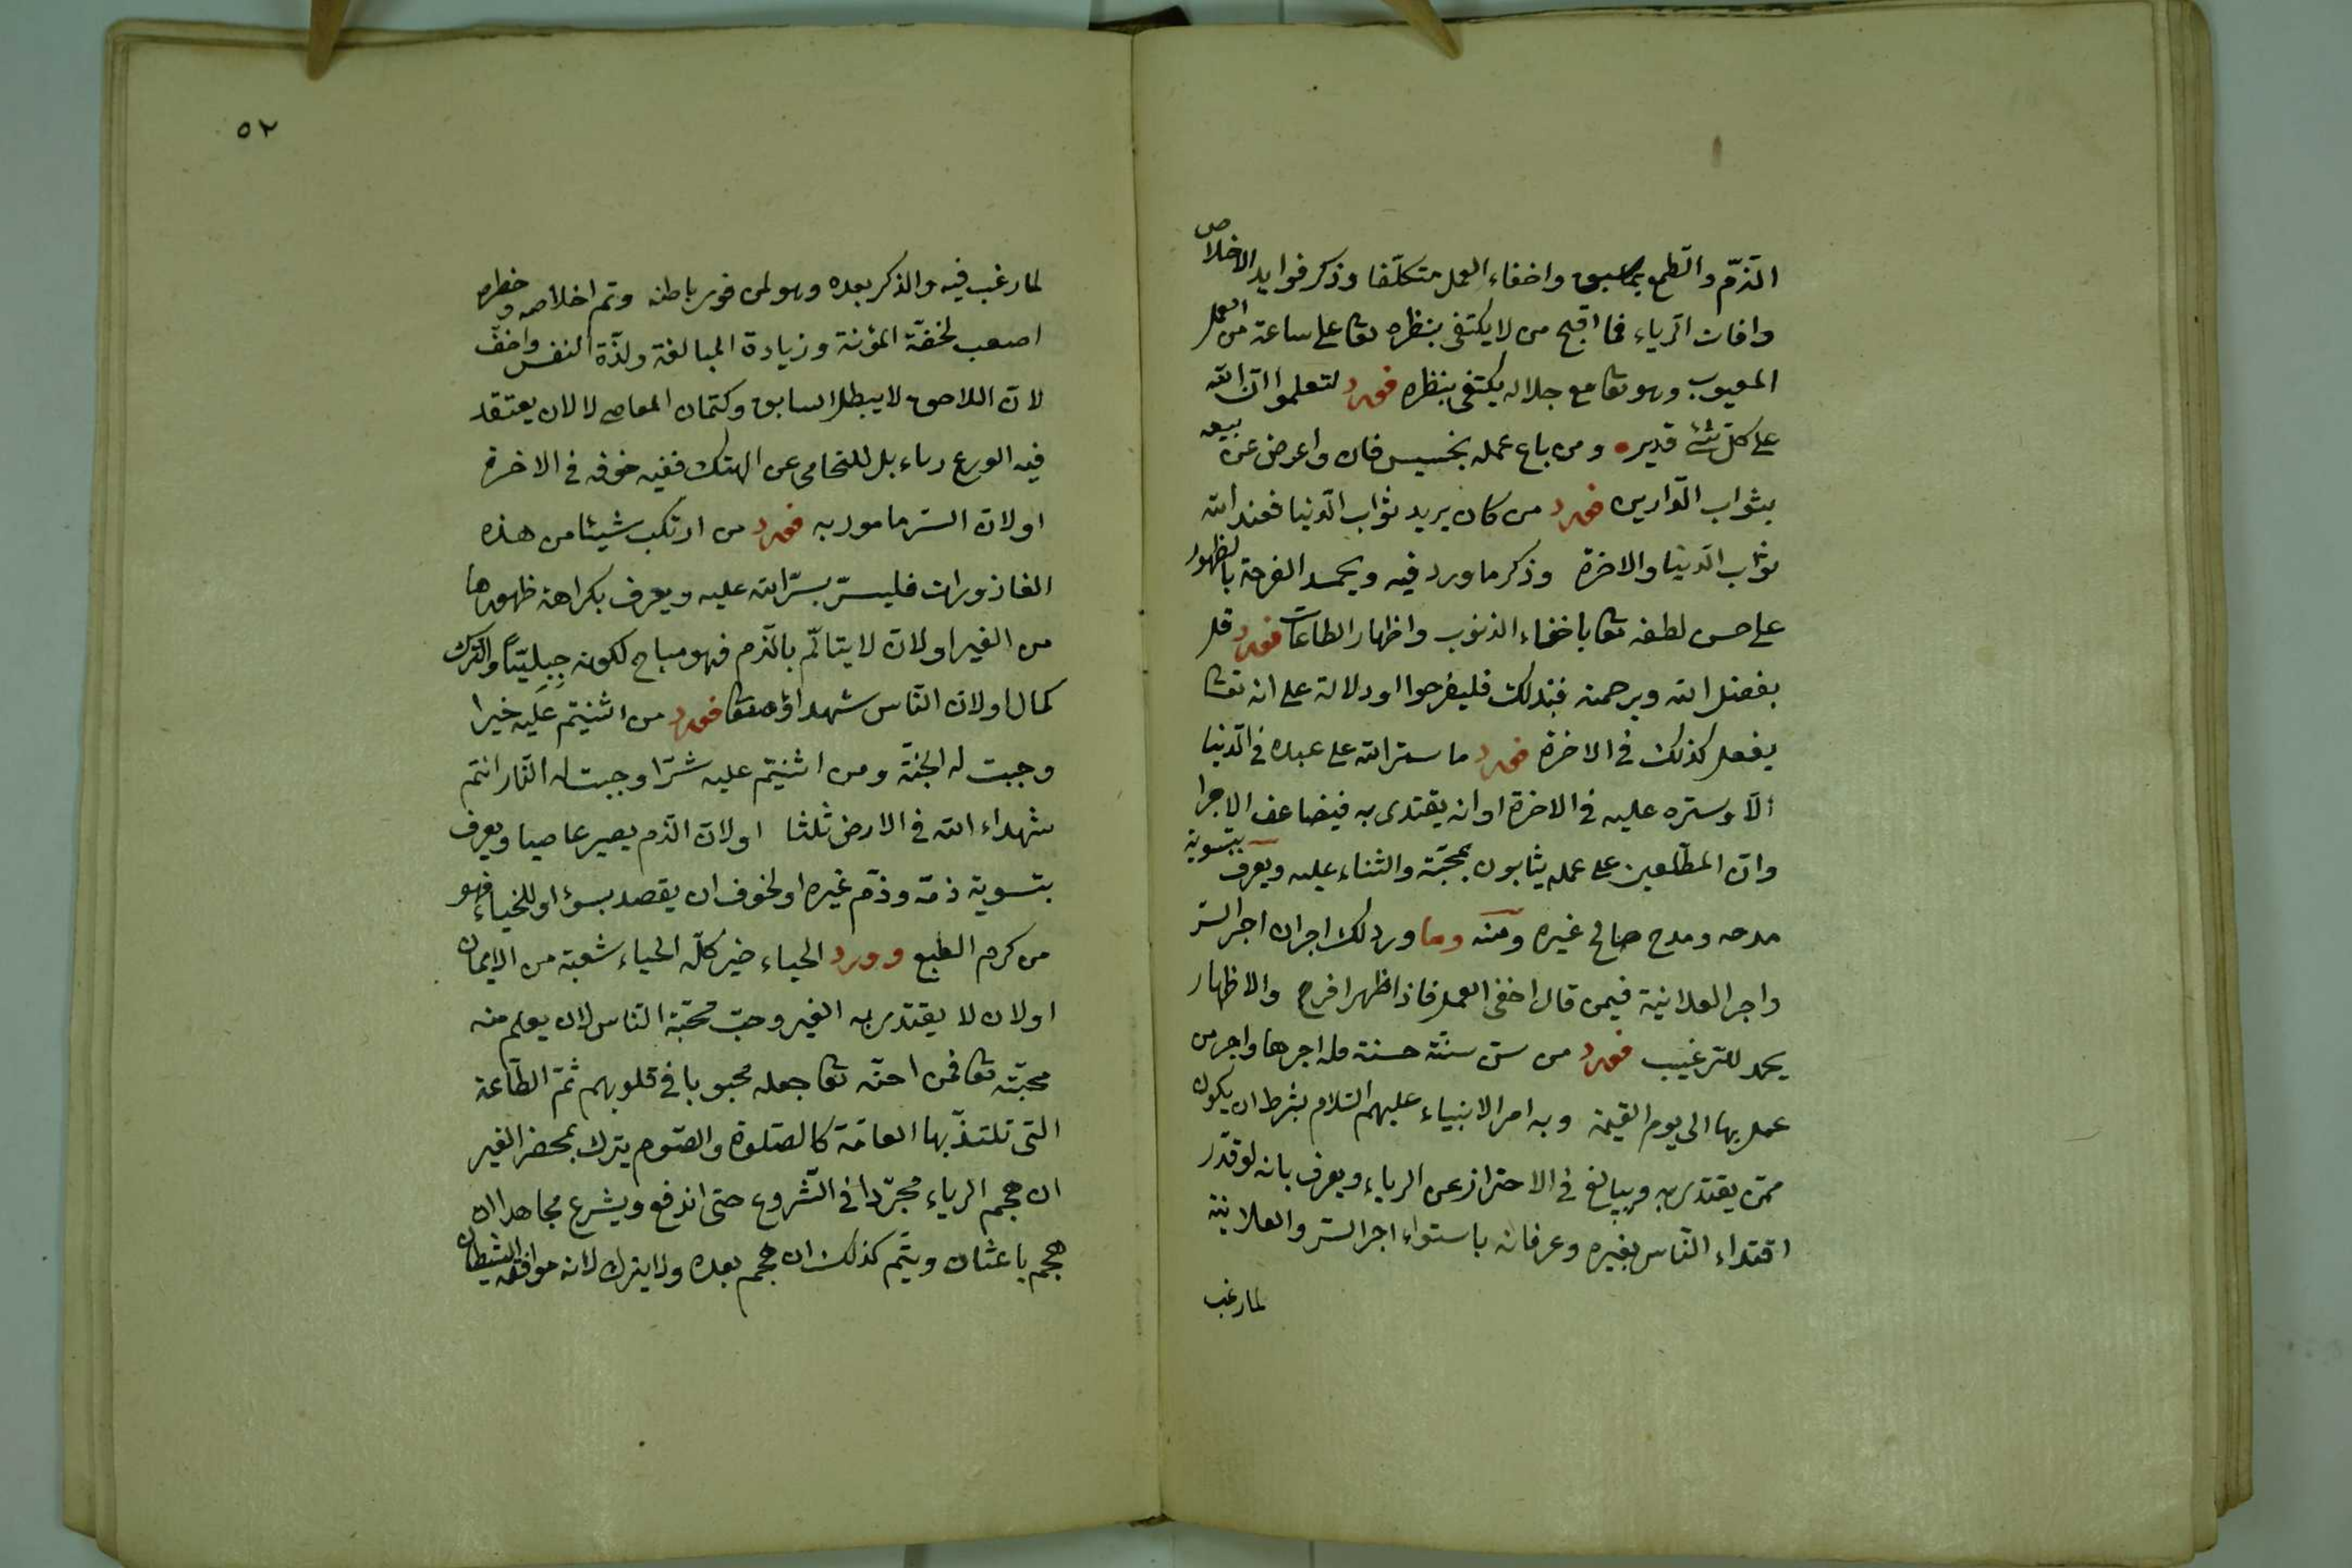 الذم والطمع بما سبق واخفاء العمل متكلفا وذكر فوايد الاخلاص
وافات الرياء فما اقبح من لا يكتفى بنظره تعا على ساعة من العمل
المعيوب وهو تعا مع جلاله يكتفى بنظره فورد لتعلموا ان الله
على كل شئ قدير ومن باع عمله بخسيس فان واعرض عن بيعه
بثواب الدارين فورد من كان يريد ثواب الدنيا فعند الله
ثواب الدنيا والاخرة وذكر ما ورد فيه ويحمد الفرحة بالظهور
على حسن لطفه تعا باخفاء الذنوب واظهار الطاعات فورد قل
بفضل الله وبرحمته فبذلك فليفرحوا او دلالة على انه تعا
يفعل كذلك فى الاخرة فورد ما ستر الله على عبده فى الدنيا
الا وستره عليه فى الاخرة او ان يقتدى به فيضاعف الاجر او
وان المطلعين على عمله يثابون بمحبته والثناء عليه ويعرف بتسوية
مدحه ومدح صالح غيره ومنه وما ورد لك اجران اجر السر
واجر العلانية فيمن قال اخفى العمل فاذا ظهر افرح والاظهار
يحمد للترغيب فورد من سن سنة حسنة فله اجرها واجر من
عمل بها الى يوم القيمة وبه امر الانبياء عليهم السلام بشرط ان يكون
ممن يقتدى به ويبالغ فى الاحتراز عن الرياء ويعرف بانه لو قدر
اقتداء الناس بغيره وعرفانه باستواء اجر السر والعلانية
لما رغب
٥٢
لما رغب فيه والذكر بعده وهو لمن قوى باطنه وتم اخلاصه وخطره
اصعب لخفة المؤنة وزيادة المبالغة ولذة النفس واخف
لان اللاحق لا يبطل السابق وكتمان المعاصى لا لان يعتقد
فيه الورع رياء بل للتحامى عن الهتك ففيه خوفه فى الاخرة
او لان الستر مامور به فورد من ارتكب شيئا من هذه
القاذورات فليستر بستر الله عليه ويعرف بكراهة ظهورها
من الغير او لان لا يتالم بالذم فهو مباح لكونه جبليا والترك
كمال او لان الناس شهداؤه تعا فورد من اثنيتم عليه خيرا
وجبت له الجنة ومن اثنيتم عليه شرا وجبت له النار انتم
شهداء الله فى الارض ثلثا او لان الذم يصير عاصيا ويعرف
بتسوية ذمه وذم غيره او لخوف ان يقصد بسوء او للحياء فهو
من كرم الطبع وورد الحياء خير كله الحياء شعبة من الايمان
او لان لا يقتدى به الغير وحب محبة الناس لان يعلم منه
محبته تعا فمن احبه تعا جعله محبوبا فى قلوبهم ثم الطاعة
التى تلتذ بها العامة كالصلوة والصوم يترك بمحضر الغير
ان هجم الرياء مجردا فى الشروع حتى اندفع ويشرع مجاهدا ان
هجم باعثان ويتم كذلك ان هجم بعده ولا يترك لانه موافقة الشيطان